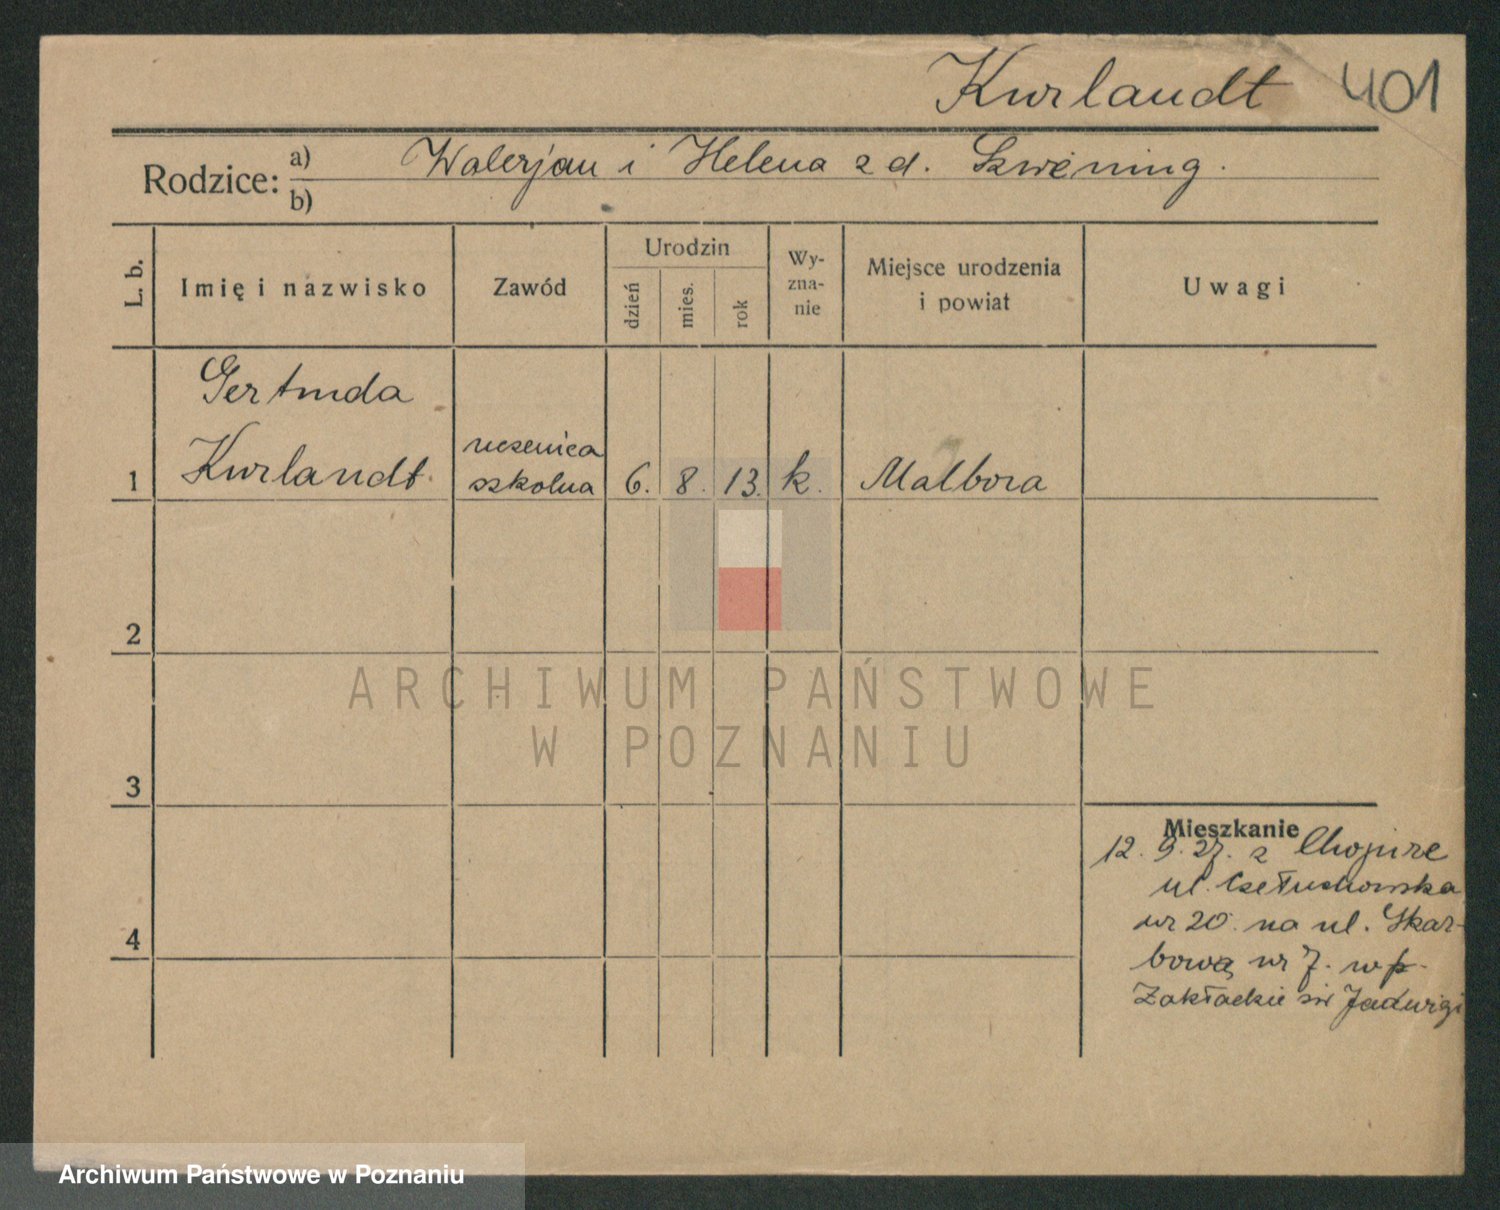 Kurlandt 401
Rodzice: a) Walerjan i Helena z d. Szwening.
b)
L. b.
Imię i nazwisko
Zawód
Urodzin
dzień
mies.
rok
Wy-
zna-
nie
Miejsce urodzenia
i powiat
Uwagi
Gertruda
Kurlandt.
uczenica
1 szkolna 6. 8. 13. k. Malbora
2
3
4
Mieszkanie
12. 9. 27. z Chojnic
ul. Człuchowska
nr 20. na ul. Skar-
bową nr 7. w
Zakładzie św Jadwigi
ARCHIWUM PAŃSTWOWE
W POZNANIU
Archiwum Państwowe w Poznaniu